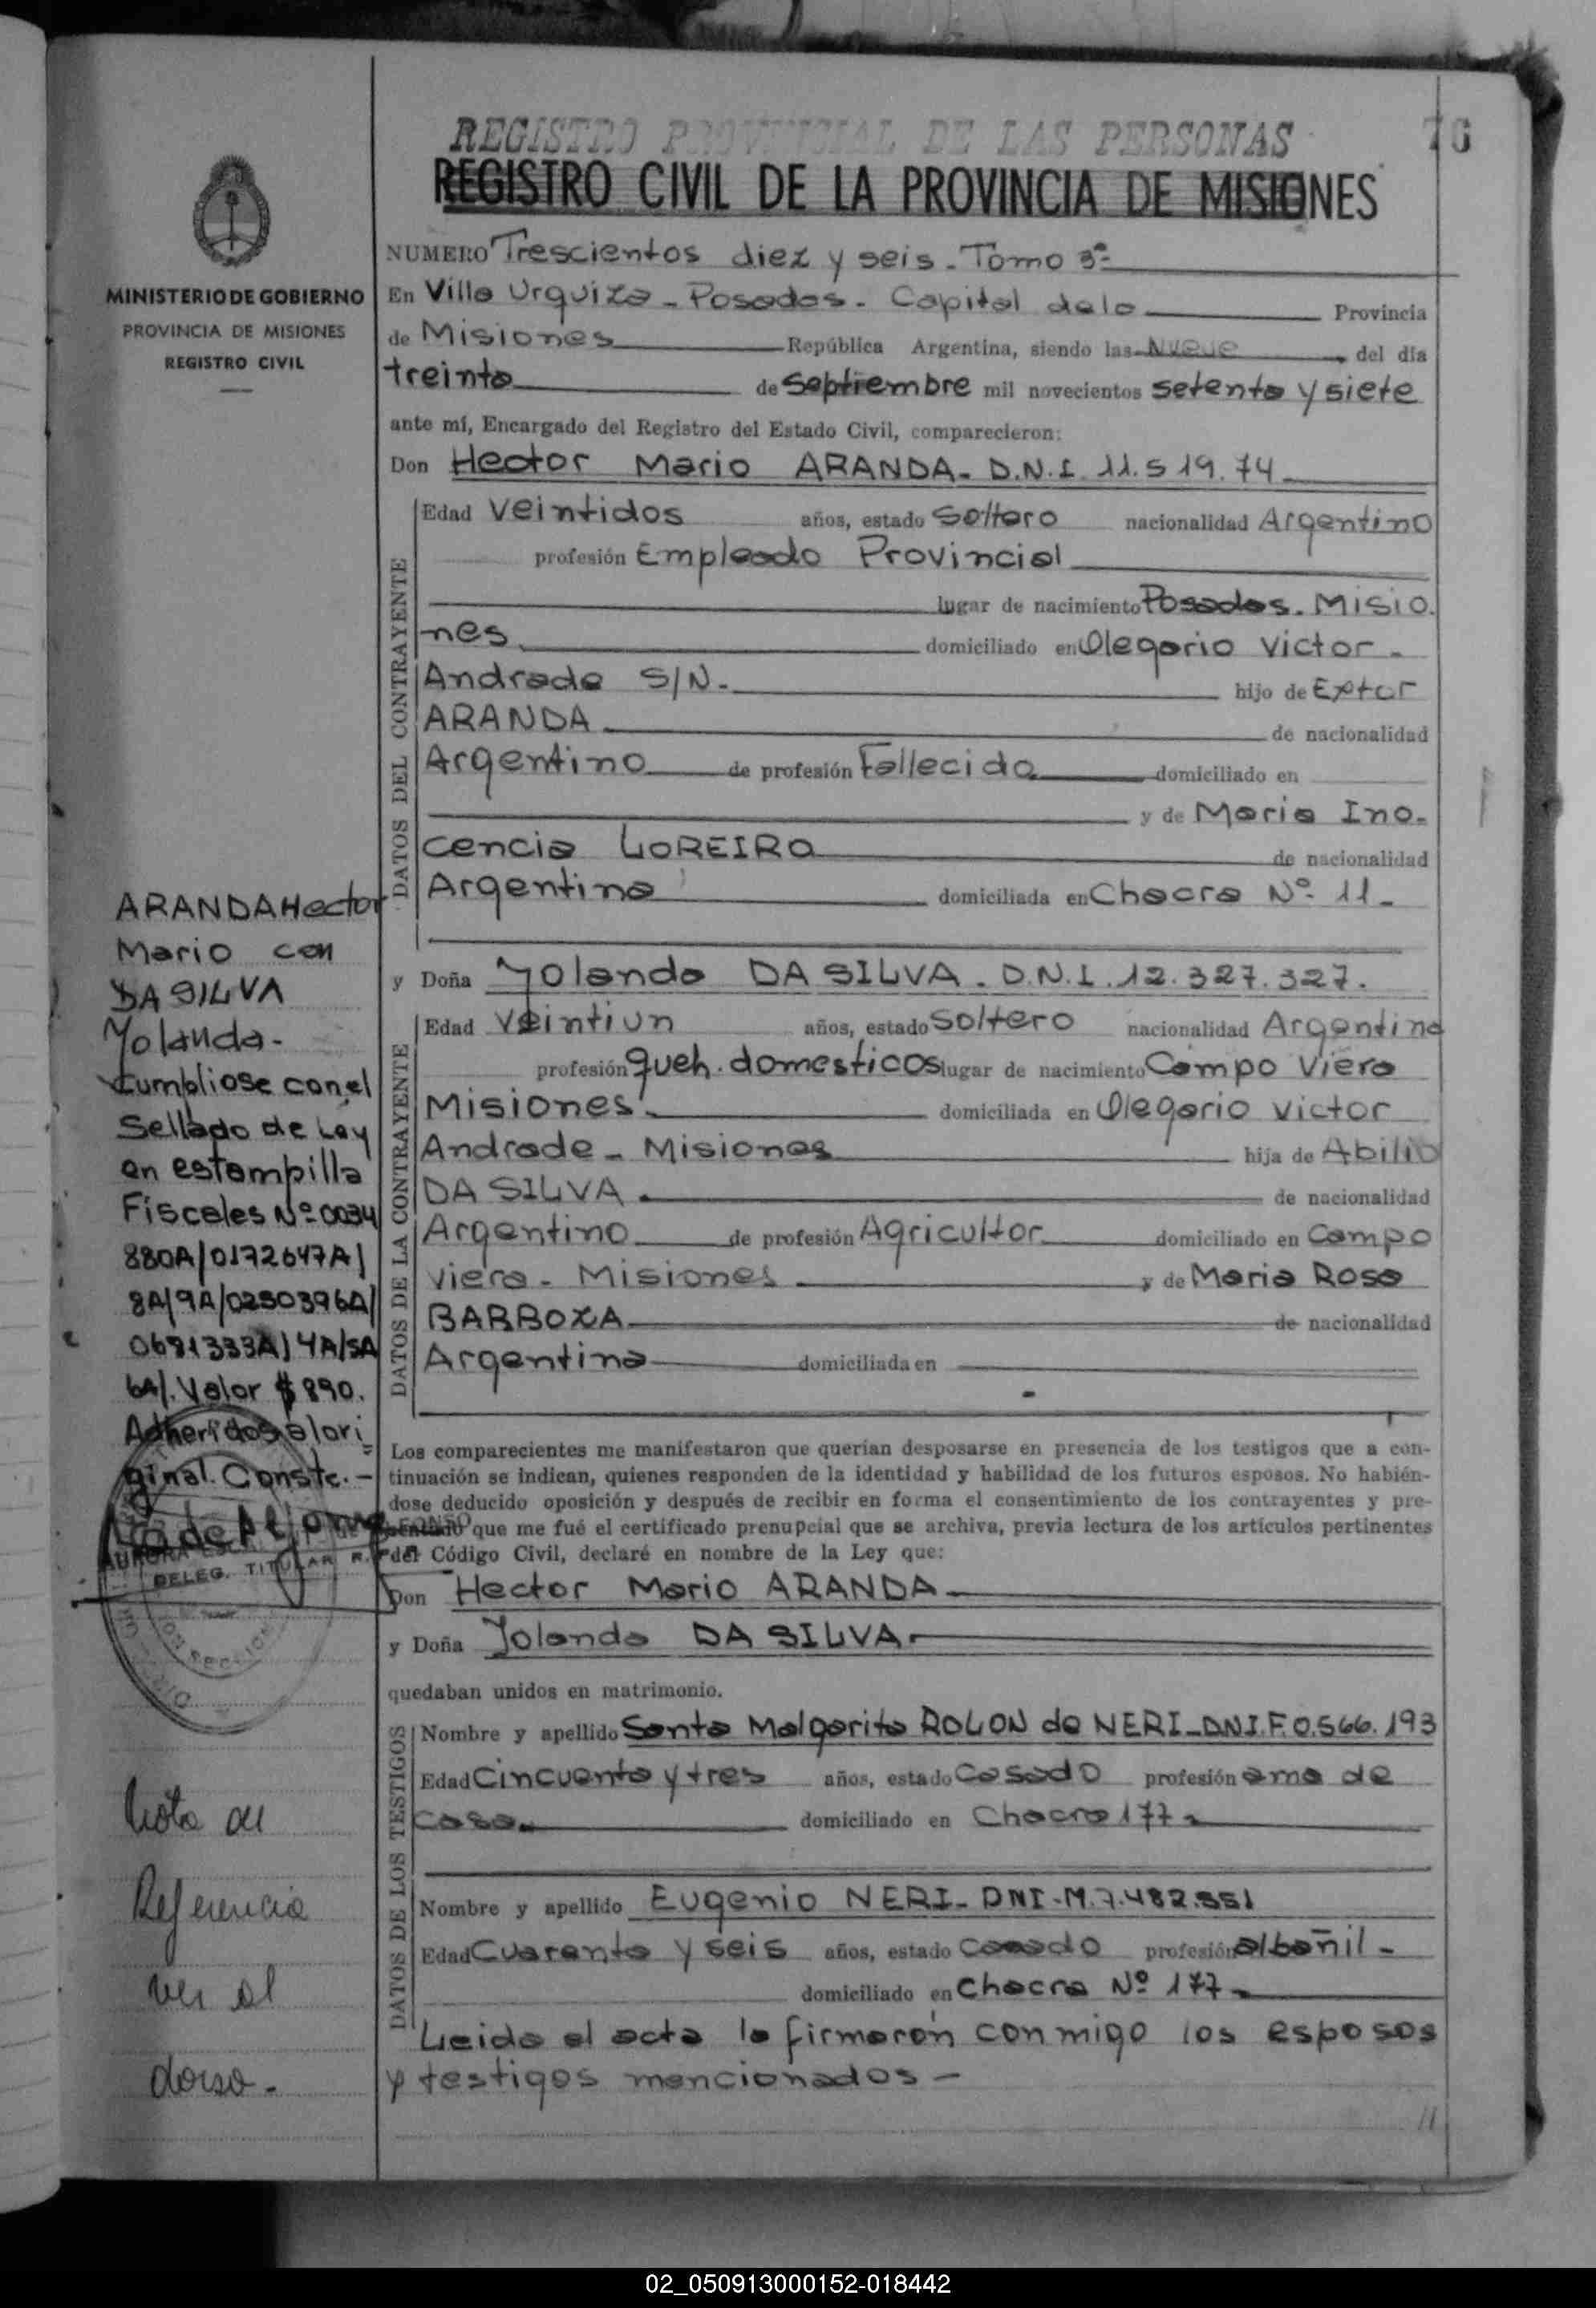 REGISTRO PROVINCIAL DE LAS PERSONAS
76
REGISTRO CIVIL DE LA PROVINCIA DE MISIONES
MINISTERIO DE GOBIERNO
PROVINCIA DE MISIONES
REGISTRO CIVIL
NUMERO Trescientos diez y seis - Tomo 3º-
En Villa Urquiza - Posadas - Capital de la Provincia
de Misiones República Argentina, siendo las Nueve del día
treinta de Septiembre mil novecientos setenta y siete
ante mí, Encargado del Registro del Estado Civil, comparecieron:
Don Hector Mario ARANDA - D.N.I. 11.519.74
DATOS DEL CONTRAYENTE
Edad Veintidos años, estado Soltero nacionalidad Argentino
profesión Empleado Provincial
lugar de nacimiento Posadas. Misio.
nes domiciliado en Olegario Victor -
Andrade S/N. hijo de
ARANDA de nacionalidad
Argentino de profesión Fallecido domiciliado en
y de Maria Ino-
cencia LOREIRO de nacionalidad
Argentina domiciliada en Chacra Nº 11 -
y Doña Yolanda DA SILVA - D.N.I. 12.327.327.
DATOS DE LA CONTRAYENTE
Edad Veintiun años, estado Soltero nacionalidad Argentina
profesión queh. domesticos lugar de nacimiento Campo Viera
Misiones. domiciliada en Olegario Victor
Andrade - Misiones hija de Abilio
DA SILVA de nacionalidad
Argentino de profesión Agricultor domiciliado en Campo
Viera - Misiones y de Maria Rosa
BARBOZA de nacionalidad
Argentina domiciliada en
Los comparecientes me manifestaron que querían desposarse en presencia de los testigos que a con-
tinuación se indican, quienes responden de la identidad y habilidad de los futuros esposos. No habién-
dose deducido oposición y después de recibir en forma el consentimiento de los contrayentes y pre-
sentado que me fué el certificado prenupcial que se archiva, previa lectura de los artículos pertinentes
del Código Civil, declaré en nombre de la Ley que:
Don Hector Mario ARANDA
y Doña Yolanda DA SILVA
quedaban unidos en matrimonio.
DATOS DE LOS TESTIGOS
Nombre y apellido Santa Malgarita ROLON de NERI - DNI.F.0.566.193
Edad Cincuenta y tres años, estado Casado profesión ama de
casa. domiciliado en Chacra 177 -
Nombre y apellido Eugenio NERI - DNI-M.7.482.551
Edad Cuarenta y seis años, estado casado profesión albañil -
domiciliado en Chacra Nº 177 -
Leida el acta la firmaron conmigo los esposos
y testigos mencionados -
ARANDA Hector
Mario con
DA SILVA
Yolanda -
Cumpliose con el
Sellado de Ley
en estampilla
Fiscales Nº 0034
880A/0172647A/
8A/9A/0250396A/
0681333A/4A/5A
6A/. Valor $ 890.
Adheridos al ori
ginal. Conste. -
AURORA
DELEG. TITULAR
Nota de
Referencia
ver al
dorso -
02_050913000152-018442